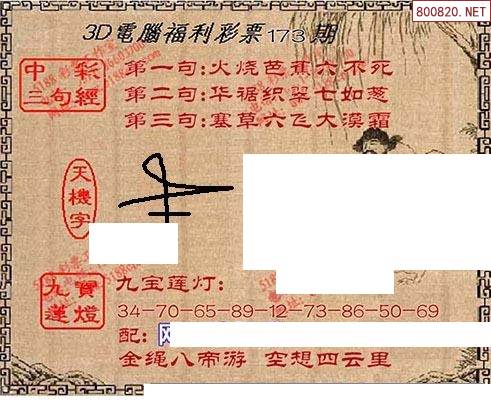 800820.NET
3D電腦福利彩票173期
中彩
三句經
第一句:火烧芭蕉六不死
第二句:华裾织翠七如葱
第三句:塞草六飞大漠霜
天機字
九寶
蓮燈
九宝莲灯:
34-70-65-89-12-73-86-50-69
配:
金绳八帝游 空想四云里